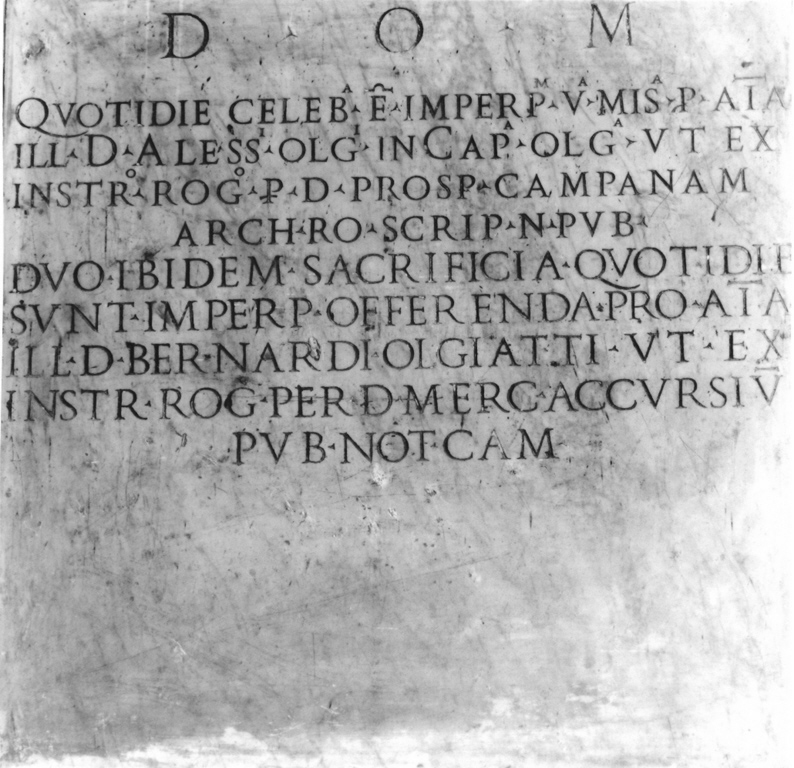 D · O · M
QVOTIDIE CELEBᴬ· Ē· IMPERPᴹ· Vᴬ· MISᴬ· P· AĪA
ILL· D· ALESSᴵ· OLGᴵ· IN CAPᴬ· OLGᴬ· VT EX
INSTRᴼ· ROGᴼ· P· D· PROSP· CAMPANAM
ARCH· RO· SCRIP· N· PVB·
DVO· IBIDEM· SACRIFICIA· QVOTIDIE
SVNT· IMPERP· OFFERENDA· PRO· AĪA
ILL· D· BERNARDI· OLGIATTI· VT· EX
INSTR· ROG· PER· D· MERC· ACCVRSIV̄
PVB· NOT· CAM